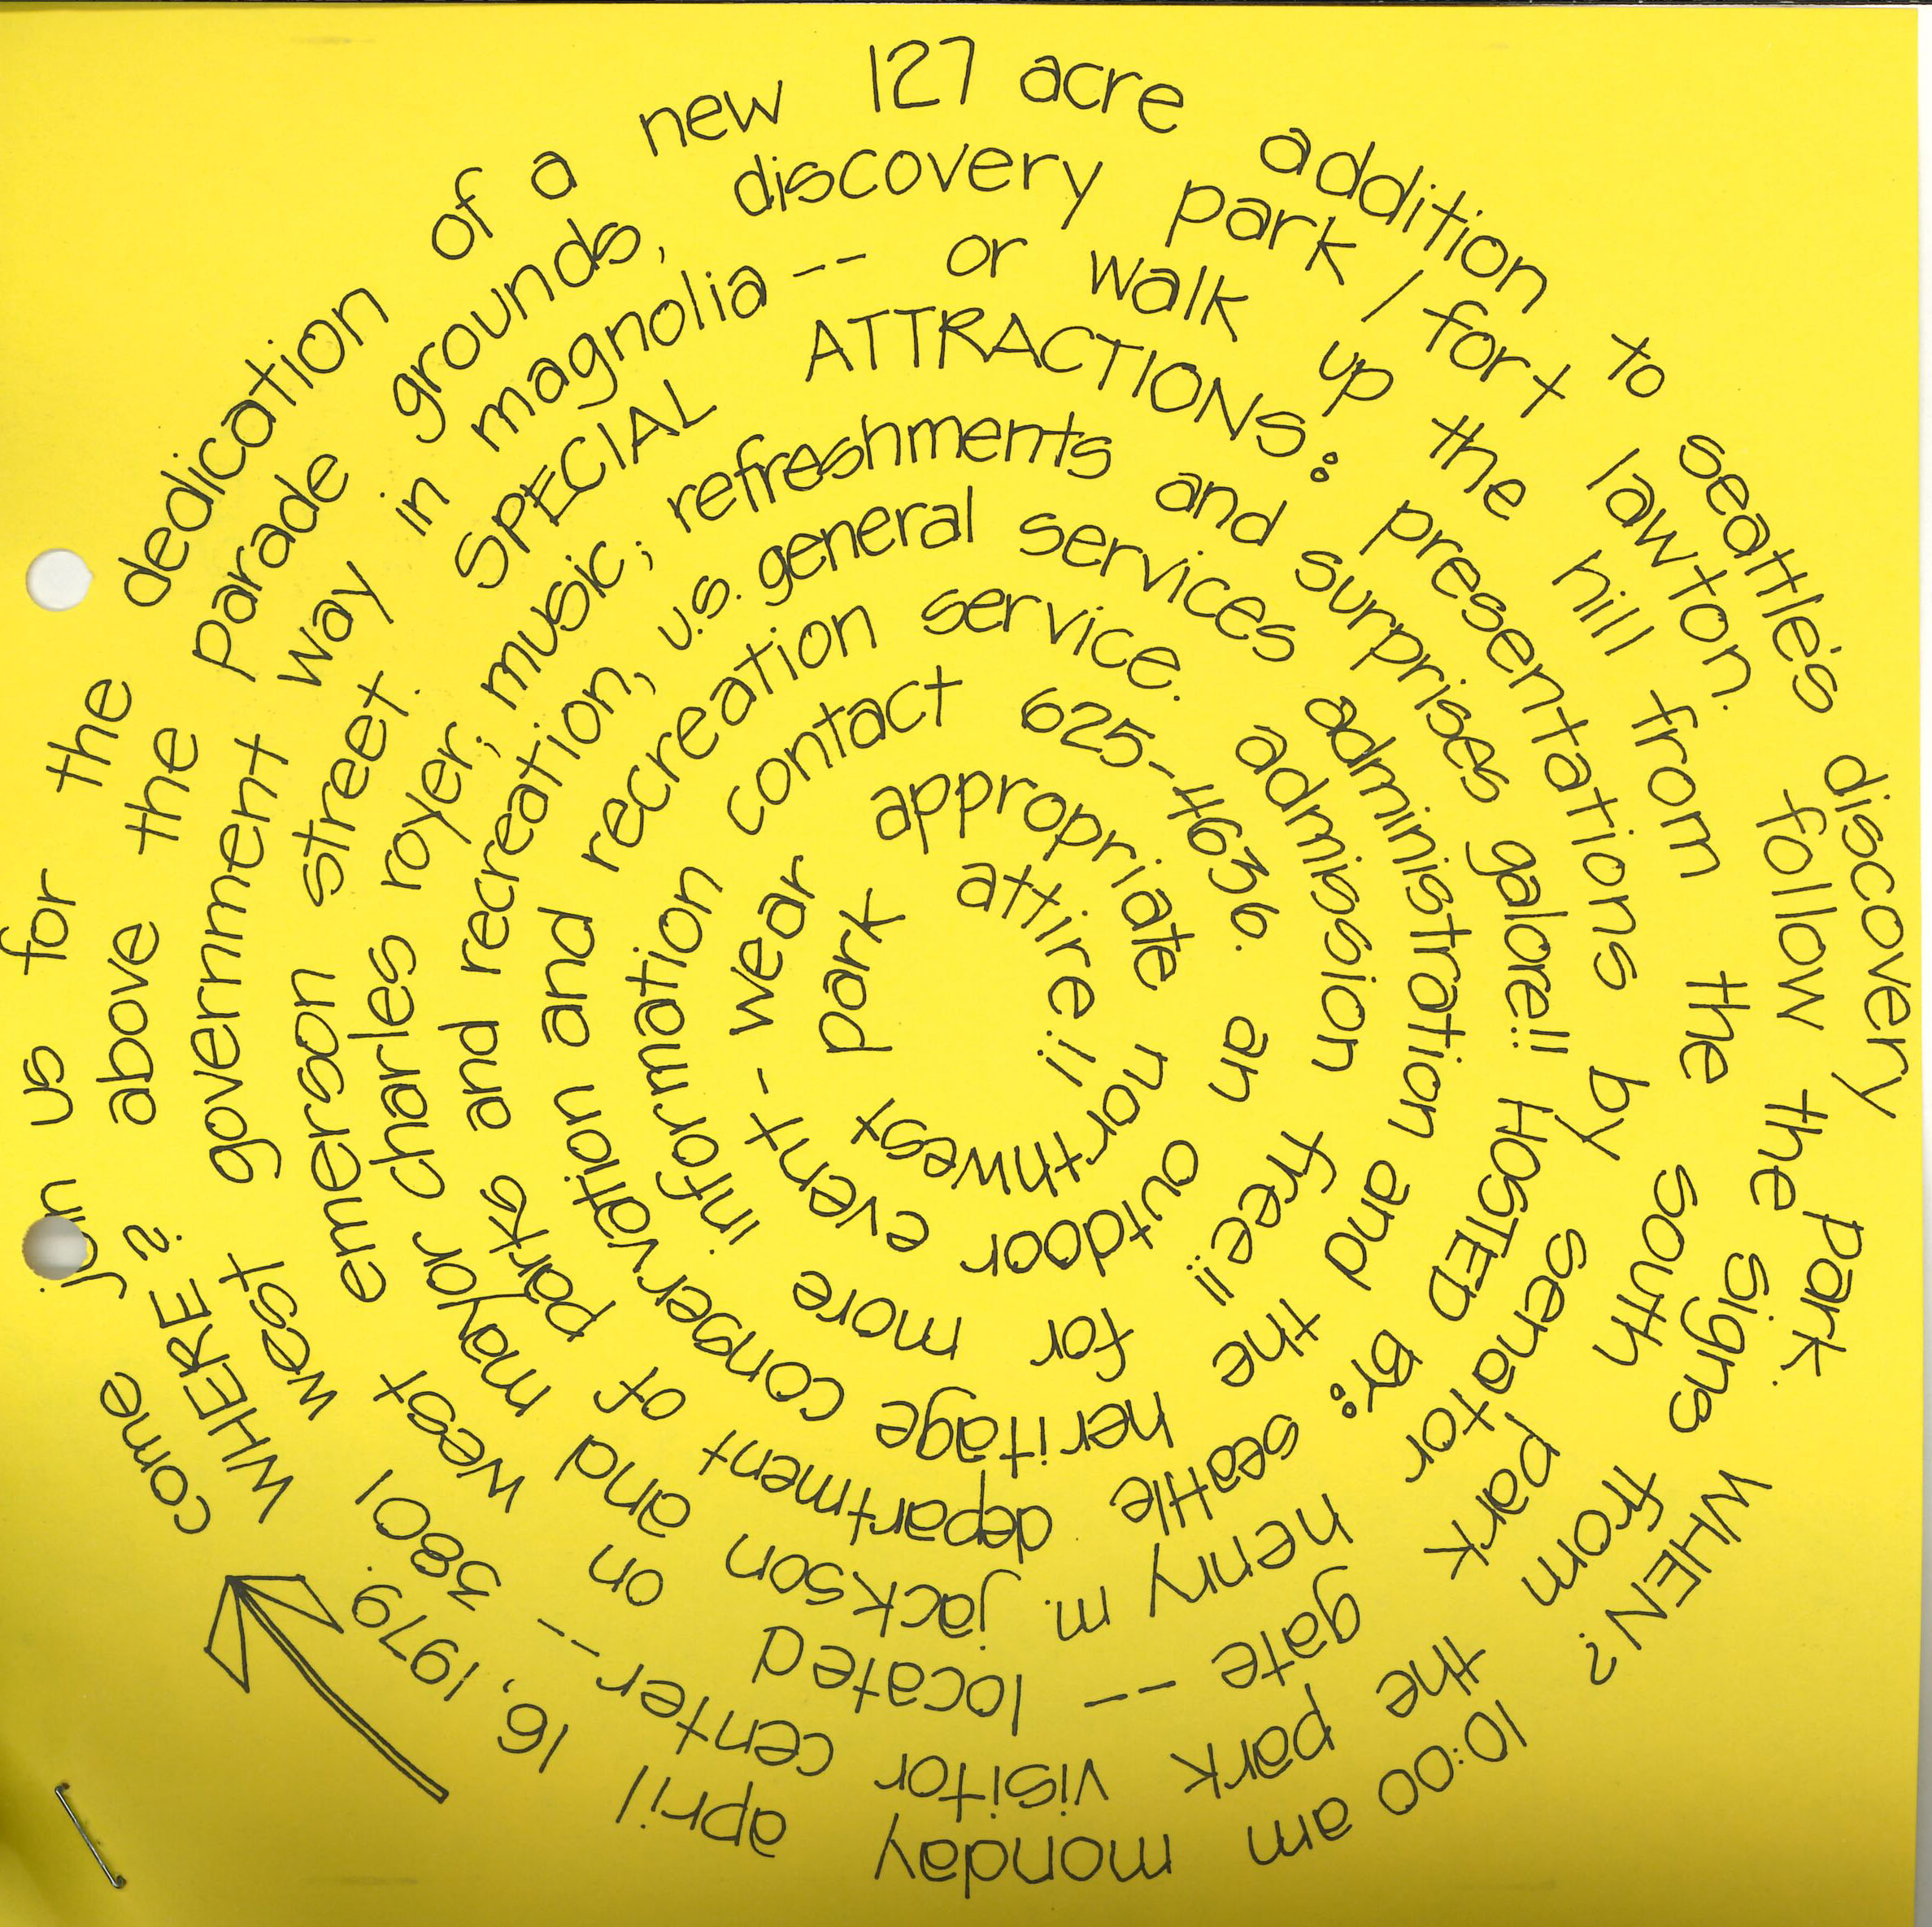 come join us for the dedication of a new 127 acre addition to seattle's discovery park. WHEN? 10:00 am monday april 16, 1979.
WHERE? above the parade grounds, discovery park / fort lawton. follow the signs from the park visitor center -- 3801
west government way in magnolia -- or walk up the hill from the south park gate -- located on west
emerson street. SPECIAL ATTRACTIONS: presentations by senator henry m. jackson and mayor
charles royer; music; refreshments and surprises galore!! HOSTED BY: seattle department of parks
and recreation, u.s. general services administration and the heritage conservation
and recreation service. admission free!! for more information
contact 625-4636. an outdoor event - wear
appropriate northwest park
attire!!